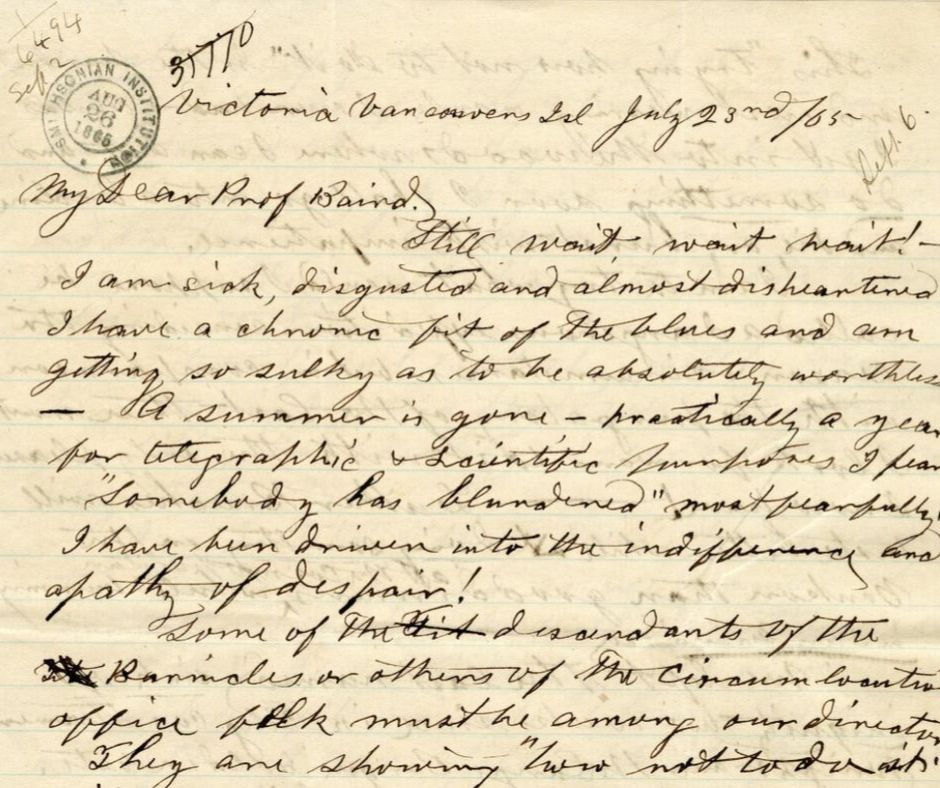 6494
Sept 2
31770
SMITHSONIAN INSTITUTION
AUG
26
1865
Victoria Vancouvers Isl July 23rd/65
Sept. 6.
My Dear Prof Baird.
Still wait, wait wait! –
I am sick, disgusted and almost disheartened
I have a chronic fit of the blues and am
getting so sulky as to be absolutely worthless
— A summer is gone – practically a year
for telegraphic & scientific purposes I fear
"Somebody has blundered" most fearfully
I have been driven into the indifference and
apathy of despair!
Some of the descendants of the
Barnicles or others of the Circumlocution
office folk must be among our director
They are showing "how not to do it"